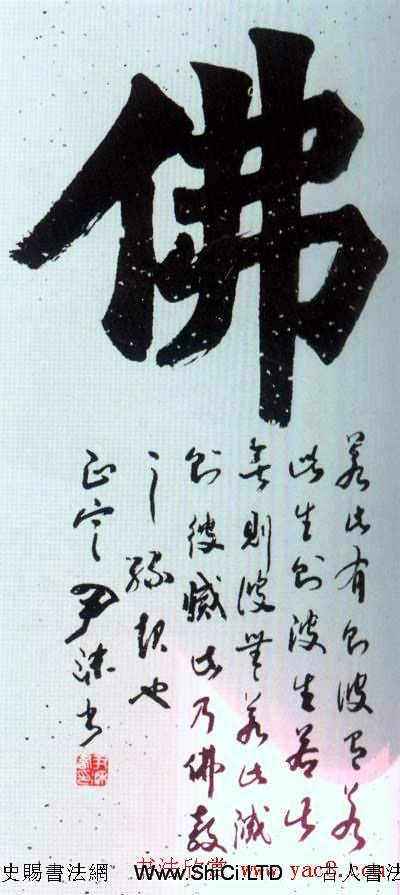 佛
若此有则彼有若
此生则彼生若此
無則彼無若此滅
则彼滅此乃佛教
之缘起也
正宁尹书
史賜書法網 WwW.ShiCi.LTD 古人書法
书法欣赏 www.yac8.com